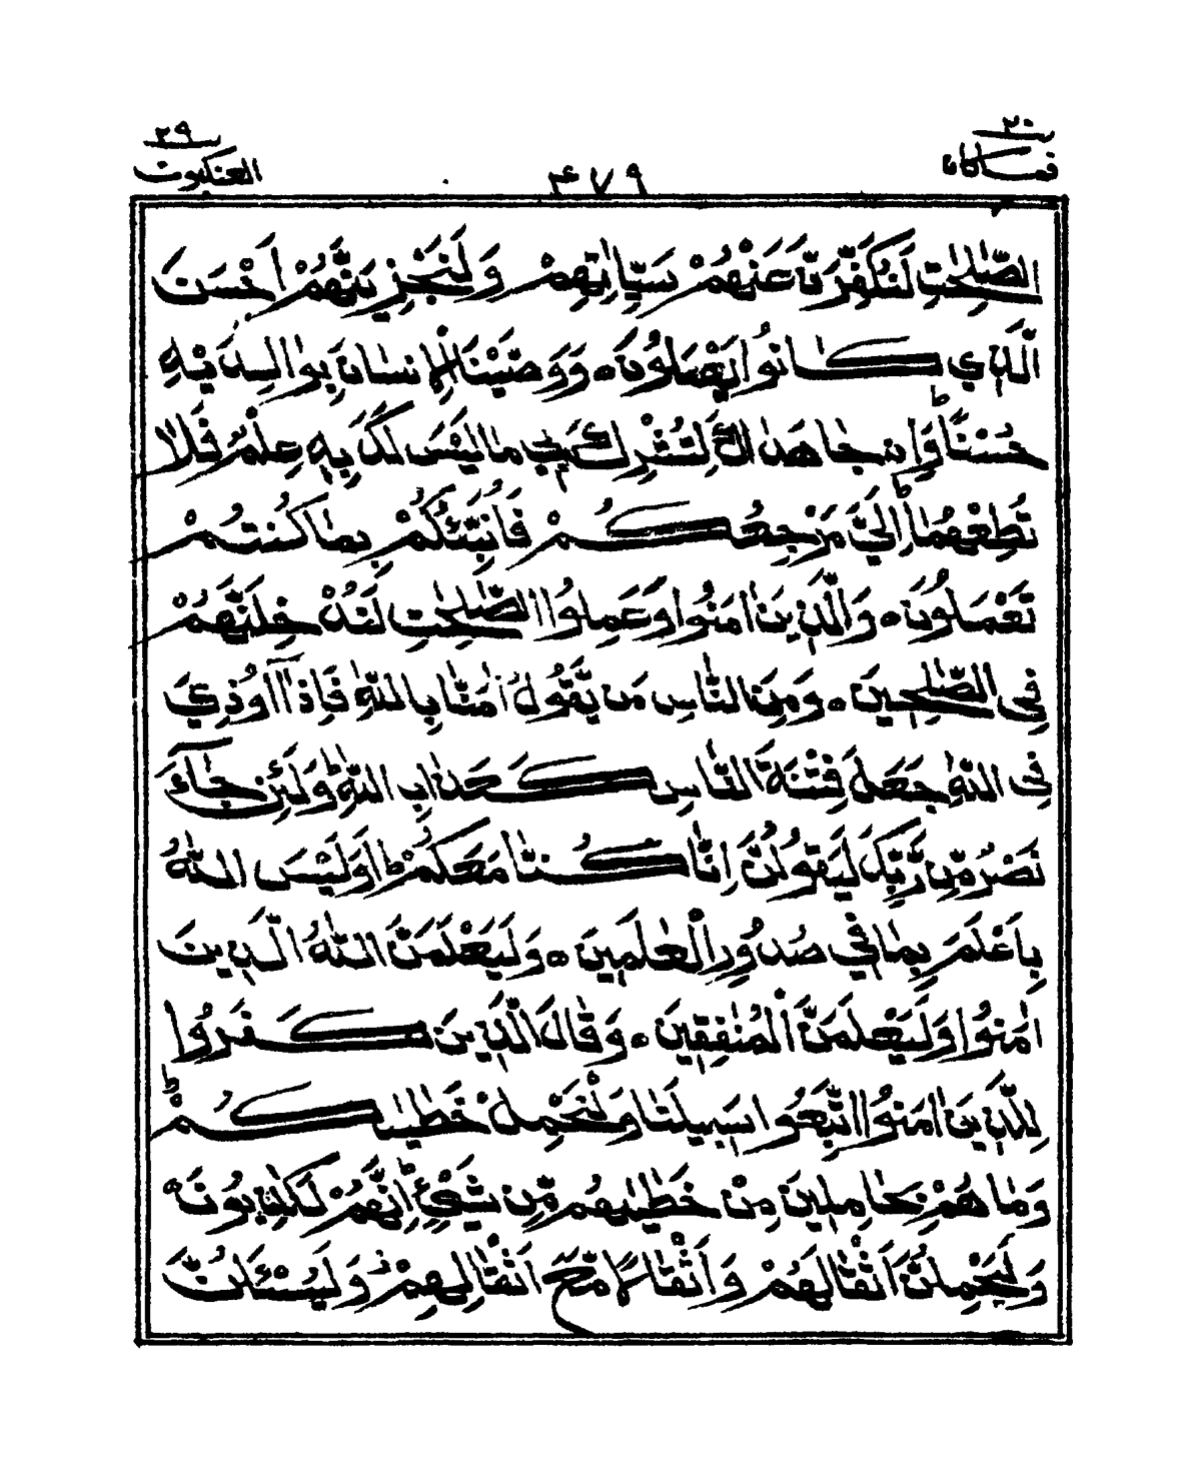 ٢٠
فماكان
٤٧٩
٢٩
العنكبوت
الصّٰلِحٰتِ لَنُكَفِّرَنَّ عَنْهُمْ سَيِّاٰتِهِمْ وَلَنَجْزِيَنَّهُمْ اَحْسَنَ
الَّذِي كَانُوا يَعْمَلُونَ ۝ وَوَصَّيْنَا الْاِنسَانَ بِوَالِدَيْهِ
حُسْنًا ؕ وَاِن جَاهَدٰكَ لِتُشْرِكَ بِي مَا لَيْسَ لَكَ بِهٖ عِلْمٌ فَلَا
تُطِعْهُمَا ؕ اِلَيَّ مَرْجِعُكُمْ فَاُنَبِّئُكُمْ بِمَا كُنتُمْ
تَعْمَلُونَ ۝ وَالَّذِينَ اٰمَنُوا وَعَمِلُوا الصّٰلِحٰتِ لَنُدْخِلَنَّهُمْ
فِى الصّٰلِحِينَ ۝ وَمِنَ النَّاسِ مَن يَّقُولُ اٰمَنَّا بِاللّٰهِ فَاِذَآ اُوذِيَ
فِى اللّٰهِ جَعَلَ فِتْنَةَ النَّاسِ كَعَذَابِ اللّٰهِ ؕ وَلَئِن جَآءَ
نَصْرٌ مِّن رَّبِّكَ لَيَقُولُنَّ اِنَّا كُنَّا مَعَكُمْ ؕ اَوَلَيْسَ اللّٰهُ
بِاَعْلَمَ بِمَا فِي صُدُورِ الْعٰلَمِينَ ۝ وَلَيَعْلَمَنَّ اللّٰهُ الَّذِينَ
اٰمَنُوا وَلَيَعْلَمَنَّ الْمُنٰفِقِينَ ۝ وَقَالَ الَّذِينَ كَفَرُوا
لِلَّذِينَ اٰمَنُوا اتَّبِعُوا سَبِيلَنَا وَلْنَحْمِلْ خَطٰيٰكُمْ ؕ
وَمَا هُمْ بِحَامِلِينَ مِنْ خَطٰيٰهُم مِّن شَيْءٍ ؕ اِنَّهُمْ لَكٰذِبُونَ ۝
وَلَيَحْمِلُنَّ اَثْقَالَهُمْ وَاَثْقَالًا مَّعَ اَثْقَالِهِمْ ز وَلَيُسْئَلُنَّ